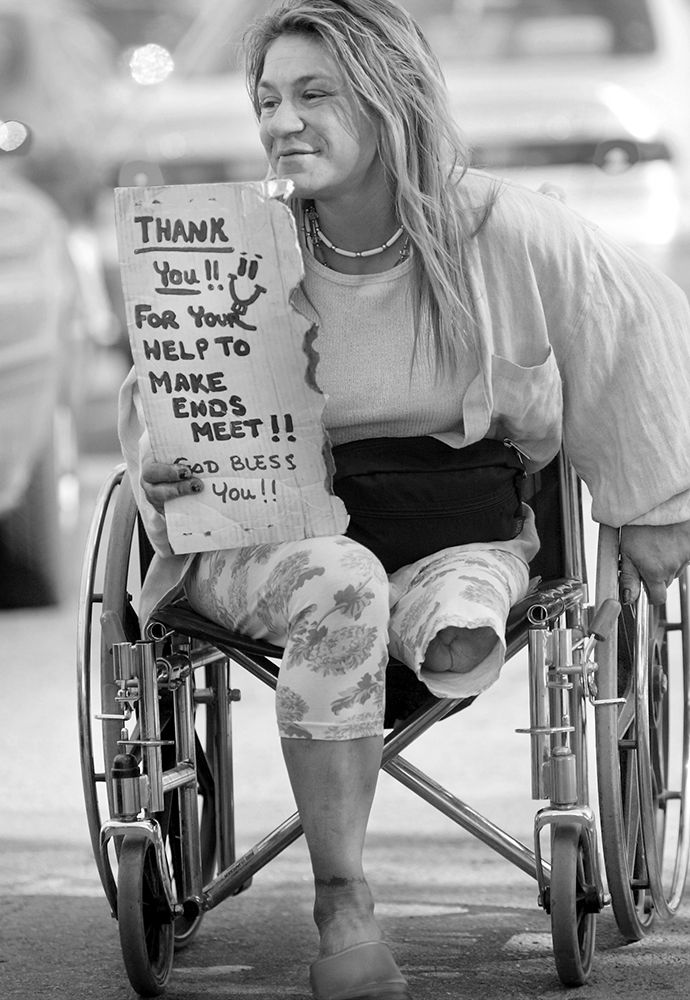 THANK
YOU!!
FOR YOUR
HELP TO
MAKE
ENDS
MEET!!
GOD BLESS
YOU!!